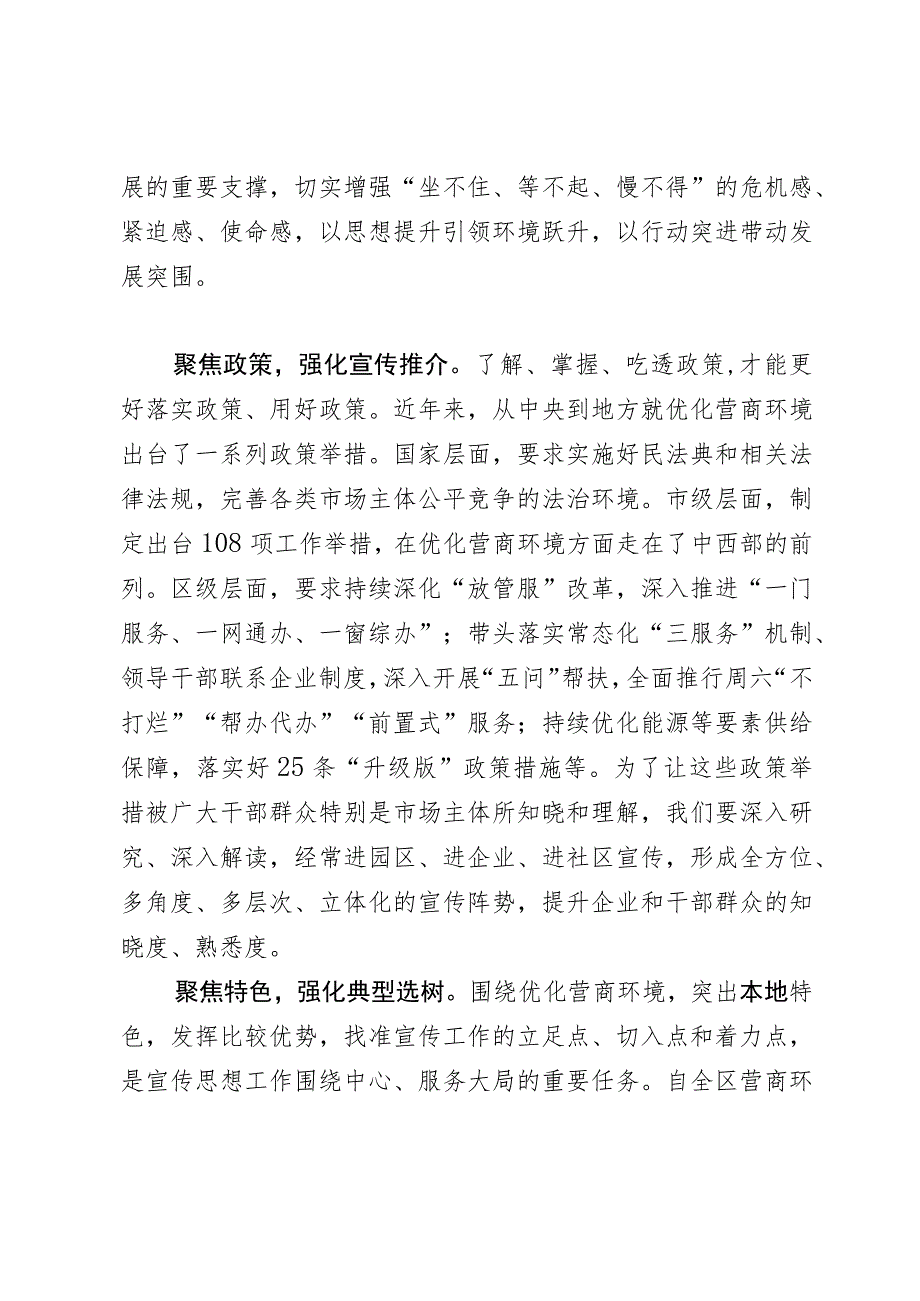 展的重要支撑，切实增强“坐不住、等不起、慢不得”的危机感、
紧迫感、使命感，以思想提升引领环境跃升，以行动突进带动发
展突围。
聚焦政策，强化宣传推介。了解、掌握、吃透政策,才能更
好落实政策、用好政策。近年来，从中央到地方就优化营商环境
出台了一系列政策举措。国家层面，要求实施好民法典和相关法
律法规，完善各类市场主体公平竞争的法治环境。市级层面，制
定出台 108 项工作举措，在优化营商环境方面走在了中西部的前
列。区级层面，要求持续深化“放管服”改革，深入推进“一门
服务、一网通办、一窗综办”；带头落实常态化“三服务”机制、
领导干部联系企业制度，深入开展“五问”帮扶，全面推行周六“不
打烂”“帮办代办”“前置式”服务；持续优化能源等要素供给
保障，落实好 25 条“升级版”政策措施等。为了让这些政策举
措被广大干部群众特别是市场主体所知晓和理解，我们要深入研
究、深入解读，经常进园区、进企业、进社区宣传，形成全方位、
多角度、多层次、立体化的宣传阵势，提升企业和干部群众的知
晓度、熟悉度。
聚焦特色，强化典型选树。围绕优化营商环境，突出本地特
色，发挥比较优势，找准宣传工作的立足点、切入点和着力点，
是宣传思想工作围绕中心、服务大局的重要任务。自全区营商环